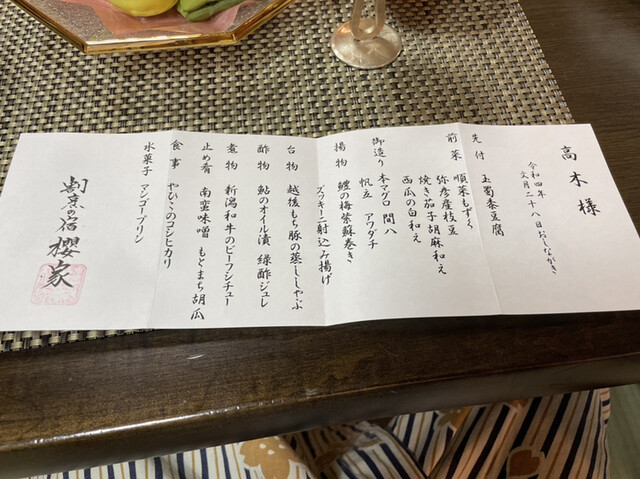 高木様
令和四年
文月二十八日おしながき
先付 玉蜀黍豆腐
前菜 順菜もずく
弥彦産枝豆
焼き茄子胡麻和え
西瓜の白和え
御造り 本マグロ 間八
帆立 アワダチ
揚物 鱧の梅紫蘇巻き
ズッキーニ射込み揚げ
台物 越後もち豚の蒸ししゃぶ
酢物 鮎のオイル漬 緑酢ジュレ
煮物 新潟和牛のビーフシチュー
止め肴 南蛮味噌 もとまち胡瓜
食事 やひこのコシヒカリ
水菓子 マンゴープリン
割烹の宿 櫻家